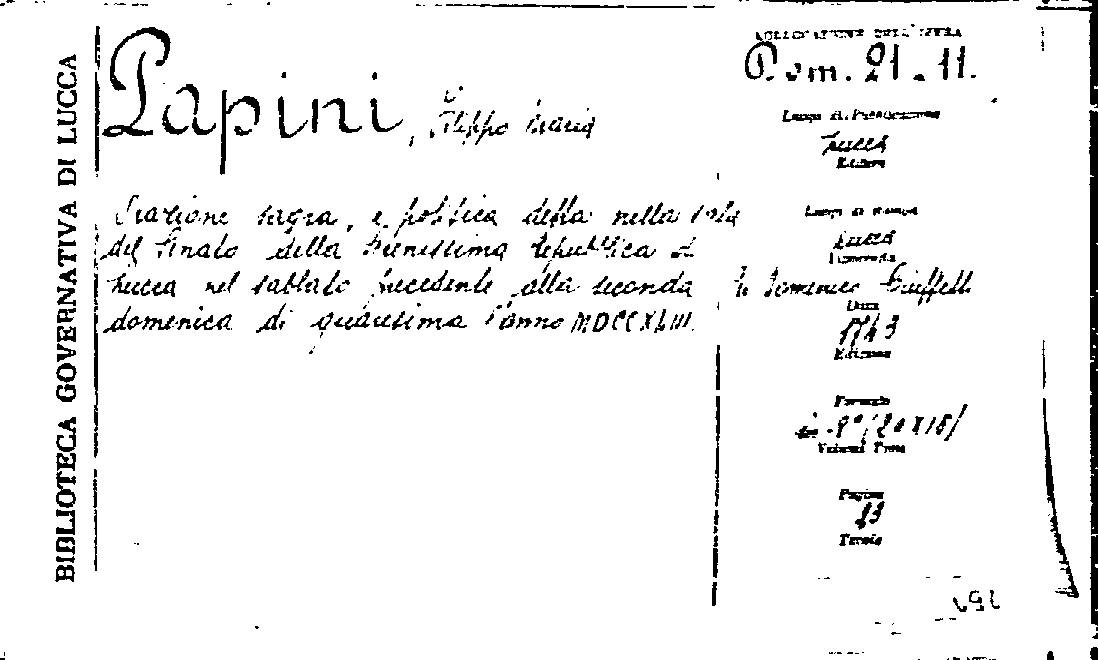 BIBLIOTECA GOVERNATIVA DI LUCCA
Papini, Filippo Maria
Orazione sagra, e politica detta nella sala
del Senato della Serenissima Repubblica di
Lucca nel sabbato precedente alla seconda
domenica di quaresima l'anno MDCCXLIII.
COLLOCAZIONE DELL'OPERA
P. om. 21.11.
Luogo di Pubblicazione
Lucca
Editore
Luogo di stampa
Lucca
Tipografia
Domenico Ciuffetti
Data
1743
Edizione
Formato
in-8°/20x15/
Volumi
Pagine
23
Tavole